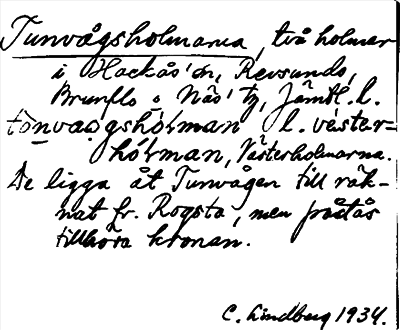 Tunvågsholmarna, två holmar
i Hackås' sn, Revsunds,
Brunflo o Näs' tg, Jämtl. l.
tōnvaogshólman l. véster-
hólman, Västerholmarna.
De ligga åt Tunvågen till räk-
nat fr. Rogsta, men påstås
tillhöra kronan.
C. Lindberg 1934.